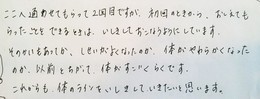 ここへ通わせてもらって2回目ですが、初回のときから、おしえても
らったことも できるときは、いしきしておこなうようにしています。
そのかいもあってか、しせいがよくなったのか、体がやわらかくなった
のか、以前とちがって、体がすごくらくです。
これからも、体のラインをいしきしていきたいと思います。